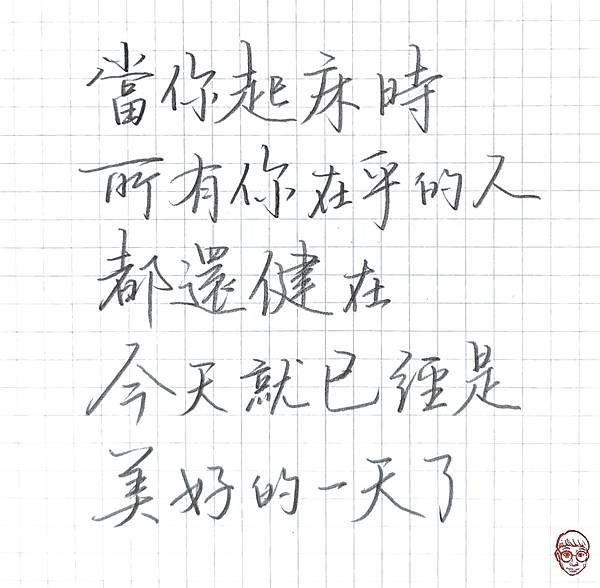 當你起床時
所有你在乎的人
都還健在
今天就已經是
美好的一天了